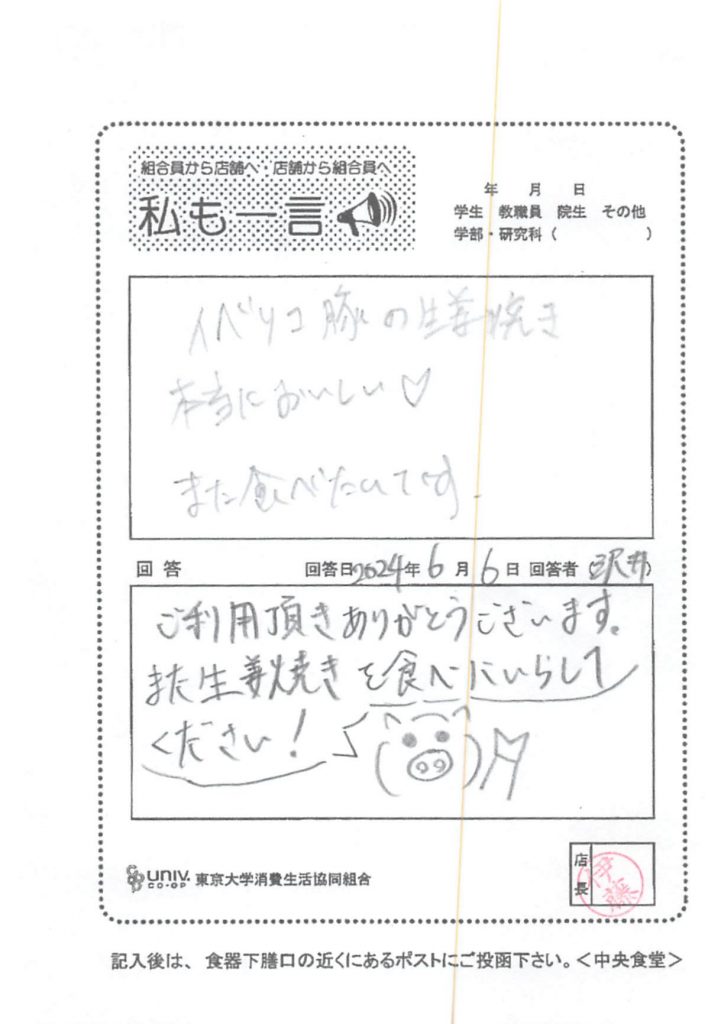 組合員から店舗へ・店舗から組合員へ
私も一言
年 月 日
学生 教職員 院生 その他
学部・研究科（ ）
イベリコ豚の生姜焼き
本当においしい♡
また食べたいです.
回答 回答日2024年6月6日 回答者（沢井）
ご利用頂きありがとうございます。
また生姜焼きを食べにいらして
ください！
UNIV. CO-OP 東京大学消費生活協同組合
店長 伊藤
記入後は、食器下膳口の近くにあるポストにご投函下さい。＜中央食堂＞